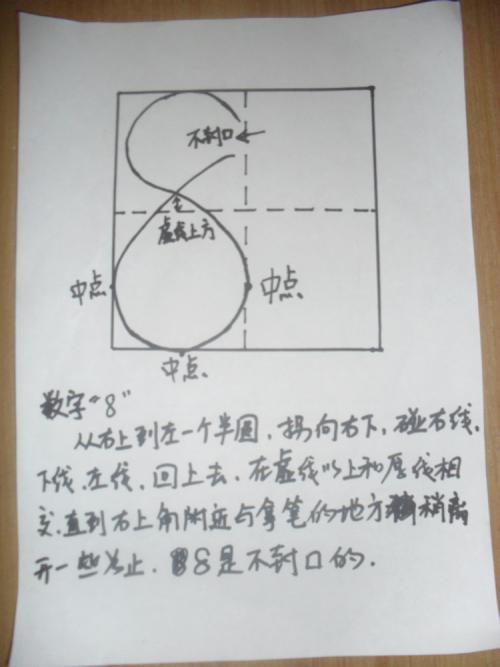 不封口
虚线上方
中点
中点、
中点、
数字“8”
从右上到左一个半圆,拐向右下,碰右线、
下线、左线,回上去,在虚线以上和原线相
交,直到右上角附近与拿笔的地方稍离
开一些为止,8是不封口的.